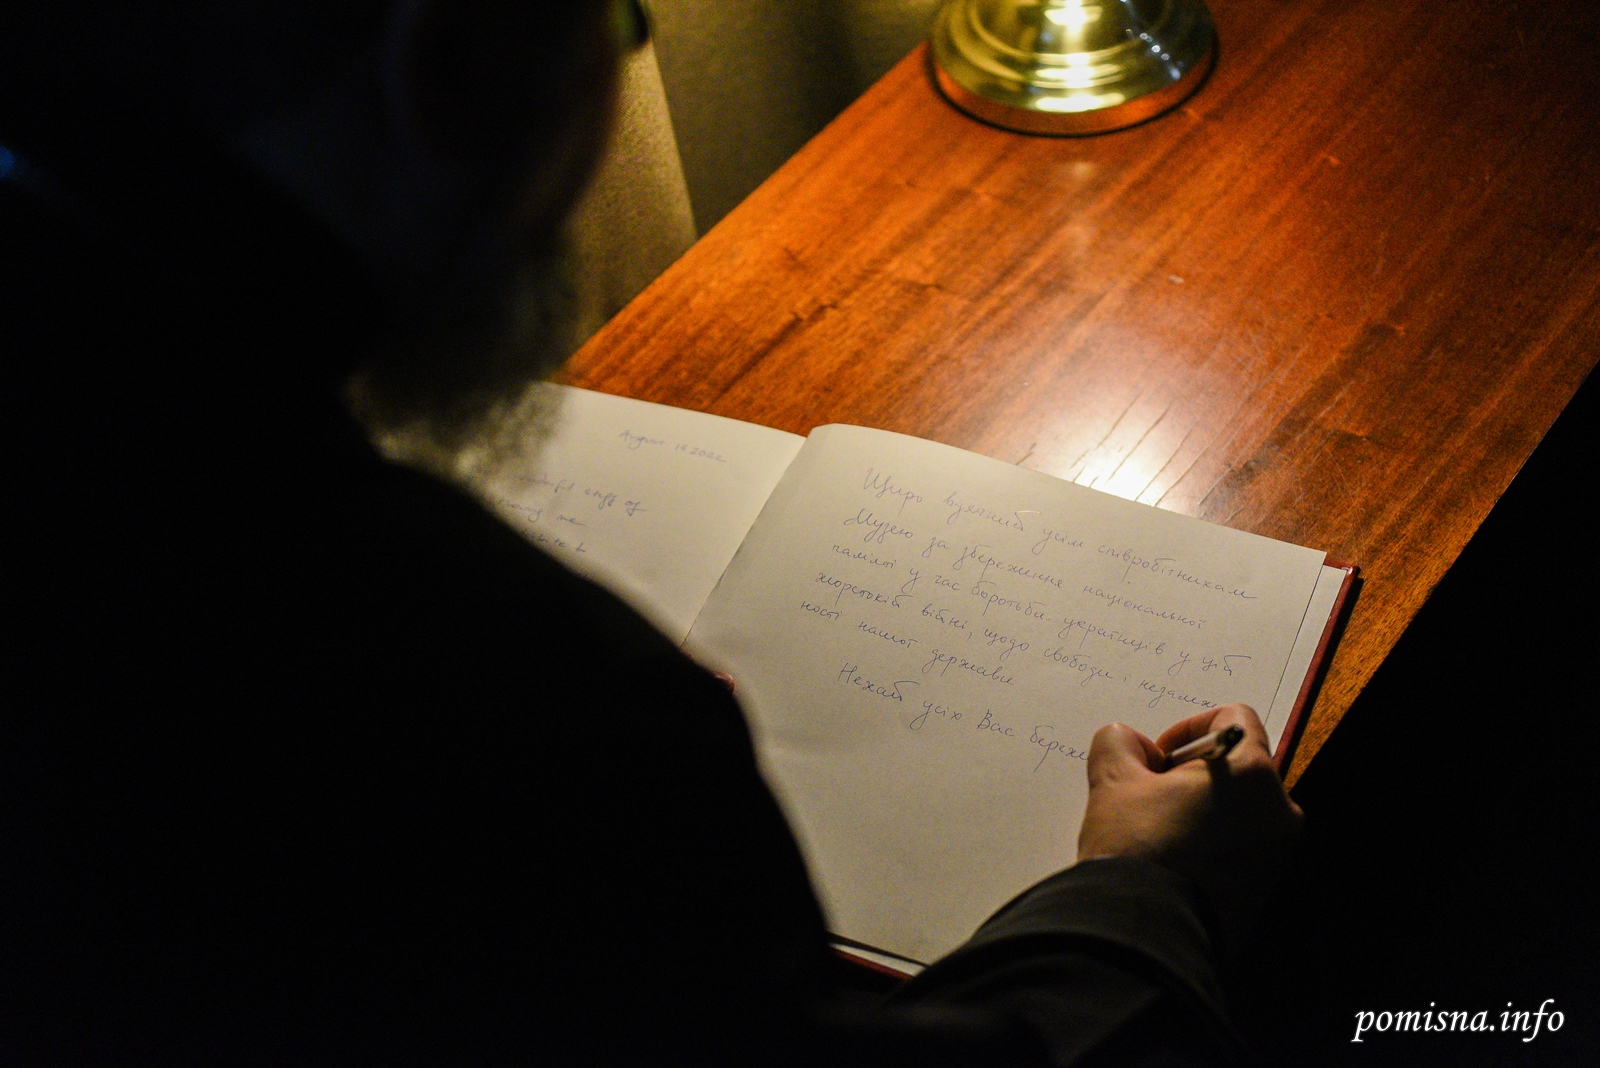 August 12 2022
staff of
me
Щиро вдячний усім співробітникам
Музею за збереження національної
памʼяті у час боротьби українців у цій
жорстокій війні, щодо свободи і незалеж
ності нашої держави
Нехай усіх Вас береже
pomisna.info